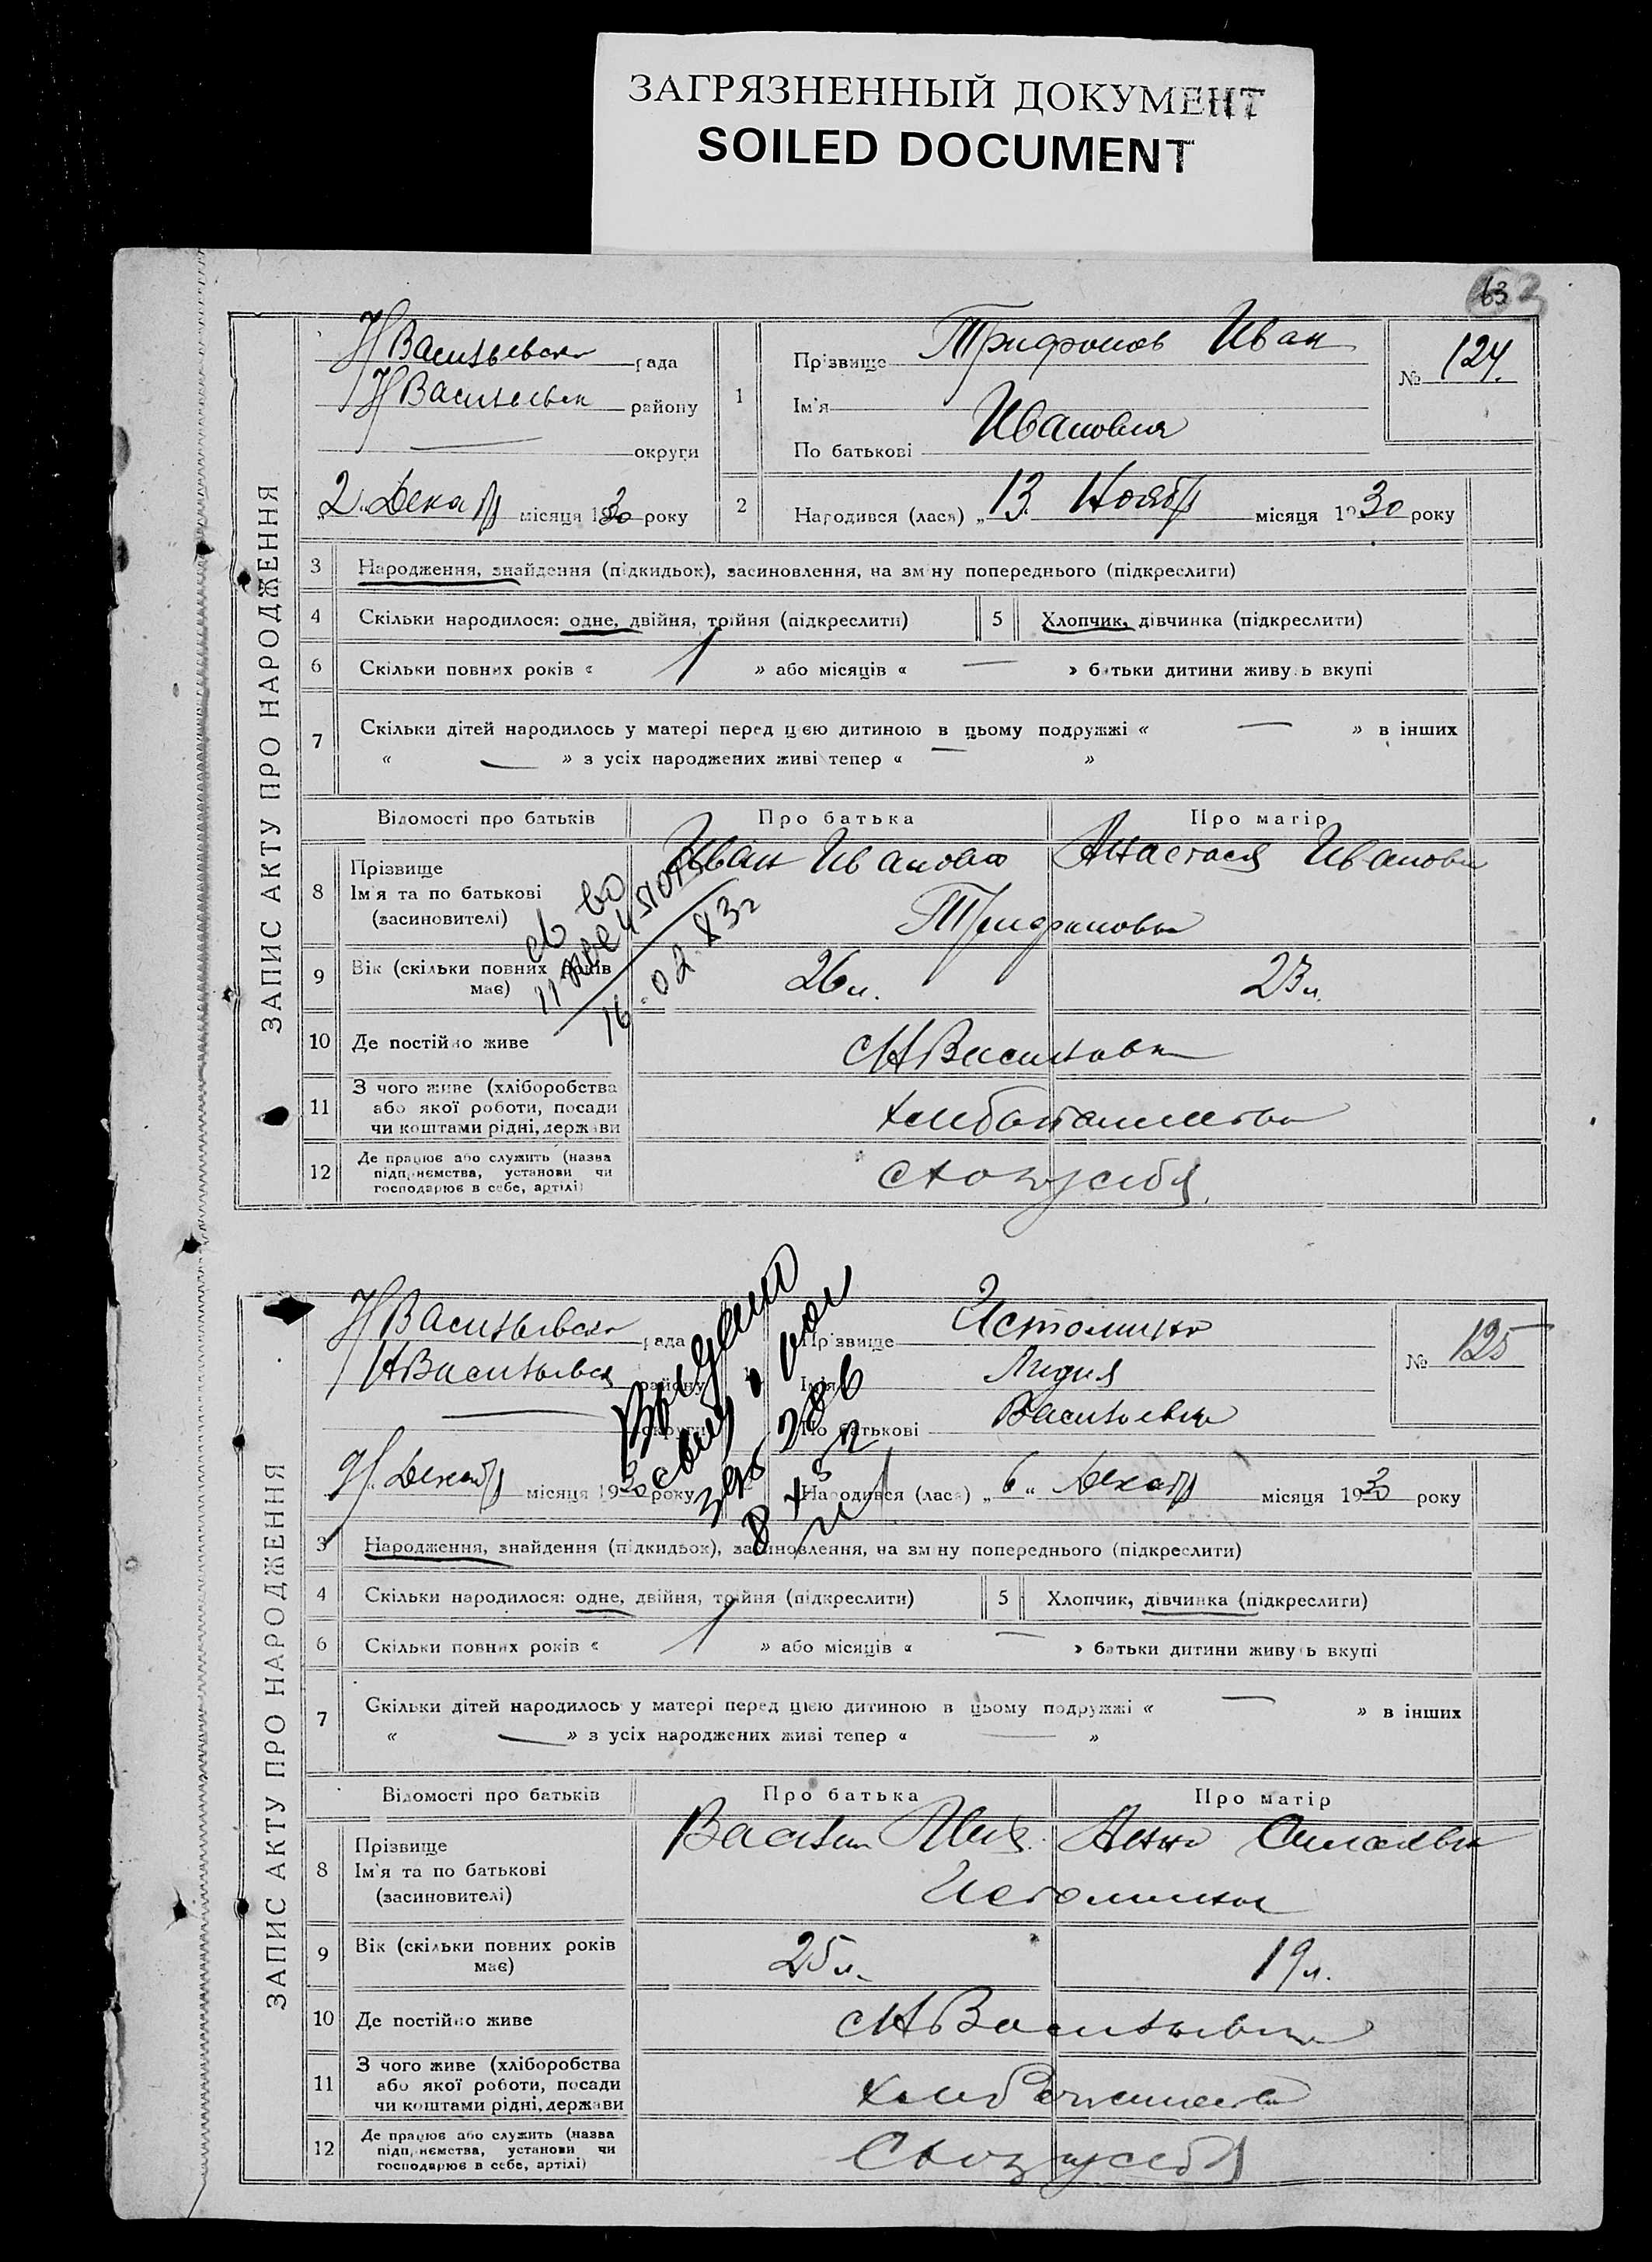 ЗАГРЯЗНЕННЫЙ ДОКУМЕНТ
SOILED DOCUMENT
63
ЗАПИС АКТУ ПРО НАРОДЖЕННЯ
Н Васильевска рада
Н Васильевск району
округи
2 Декабр місяця 1930 року
1
Прізвище Трифонов Иван
Ім'я
По батькові Иванович
№ 124.
2
Народився (лася) „13. Ноябр місяця 1930 року
3 Народження, знайдення (підкидьок), засиновлення, на зміну попереднього (підкреслити)
4 Скільки народилося: одне, двійня, трійня (підкреслити) 5 Хлопчик, дівчинка (підкреслити)
6 Скільки повних років « 1 » або місяців « — » батьки дитини живуть вкупі
7 Скільки дітей народилось у матері перед цією дитиною в цьому подружжі « — » в інших
« — » з усіх народжених живі тепер « — »
Відомості про батьків Про батька Про матір
8 Прізвище
Ім'я та по батькові
(засиновителі)
Иван Иванович Анастасия Иванови
Трифоновы
св во
16.02.83г
9 Вік (скільки повних років
має)
26 л. 23 л.
10 Де постійно живе
с Н Васильевка
11 З чого живе (хліборобства
або якої роботи, посади
чи коштами рідні, держави
хлебопашество
12 Де працює або служить (назва
підприємства, установи чи
господарює в себе, артілі)
с хоз у себя
ЗАПИС АКТУ ПРО НАРОДЖЕННЯ
Н Васильевска рада
Н Васильевск району
округи
9 Декабр місяця 1930 року
Выдано
Прізвище Истомина
Ім'я Лидия
По батькові Васильевна
№ 125
Народився (лася) „6“ Декабр місяця 1930 року
3 Народження, знайдення (підкидьок), засиновлення, на зміну попереднього (підкреслити)
4 Скільки народилося: одне, двійня, трійня (підкреслити) 5 Хлопчик, дівчинка (підкреслити)
6 Скільки повних років « 1 » або місяців « — » батьки дитини живуть вкупі
7 Скільки дітей народилось у матері перед цією дитиною в цьому подружжі « — » в інших
« — » з усіх народжених живі тепер « — »
Відомості про батьків Про батька Про матір
8 Прізвище
Ім'я та по батькові
(засиновителі)
Васили Анна
Истомины
9 Вік (скільки повних років
має)
25 л. 19 л.
10 Де постійно живе
с Н Васильевка
11 З чого живе (хліборобства
або якої роботи, посади
чи коштами рідні, держави
хлебопашество
12 Де працює або служить (назва
підприємства, установи чи
господарює в себе, артілі)
С хоз у себя